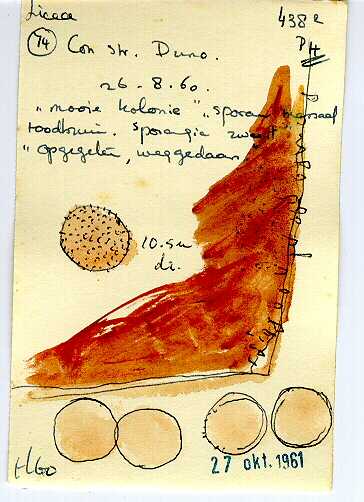 Licea 438e
74 Con str. Duno. PH
26-8-60.
"mooie kolonie" "sporen massaal
roodbruin. Sporangia zwart"
"opgegeten, weggedaan"
10.5u
di.
HGO
27 okt. 1961